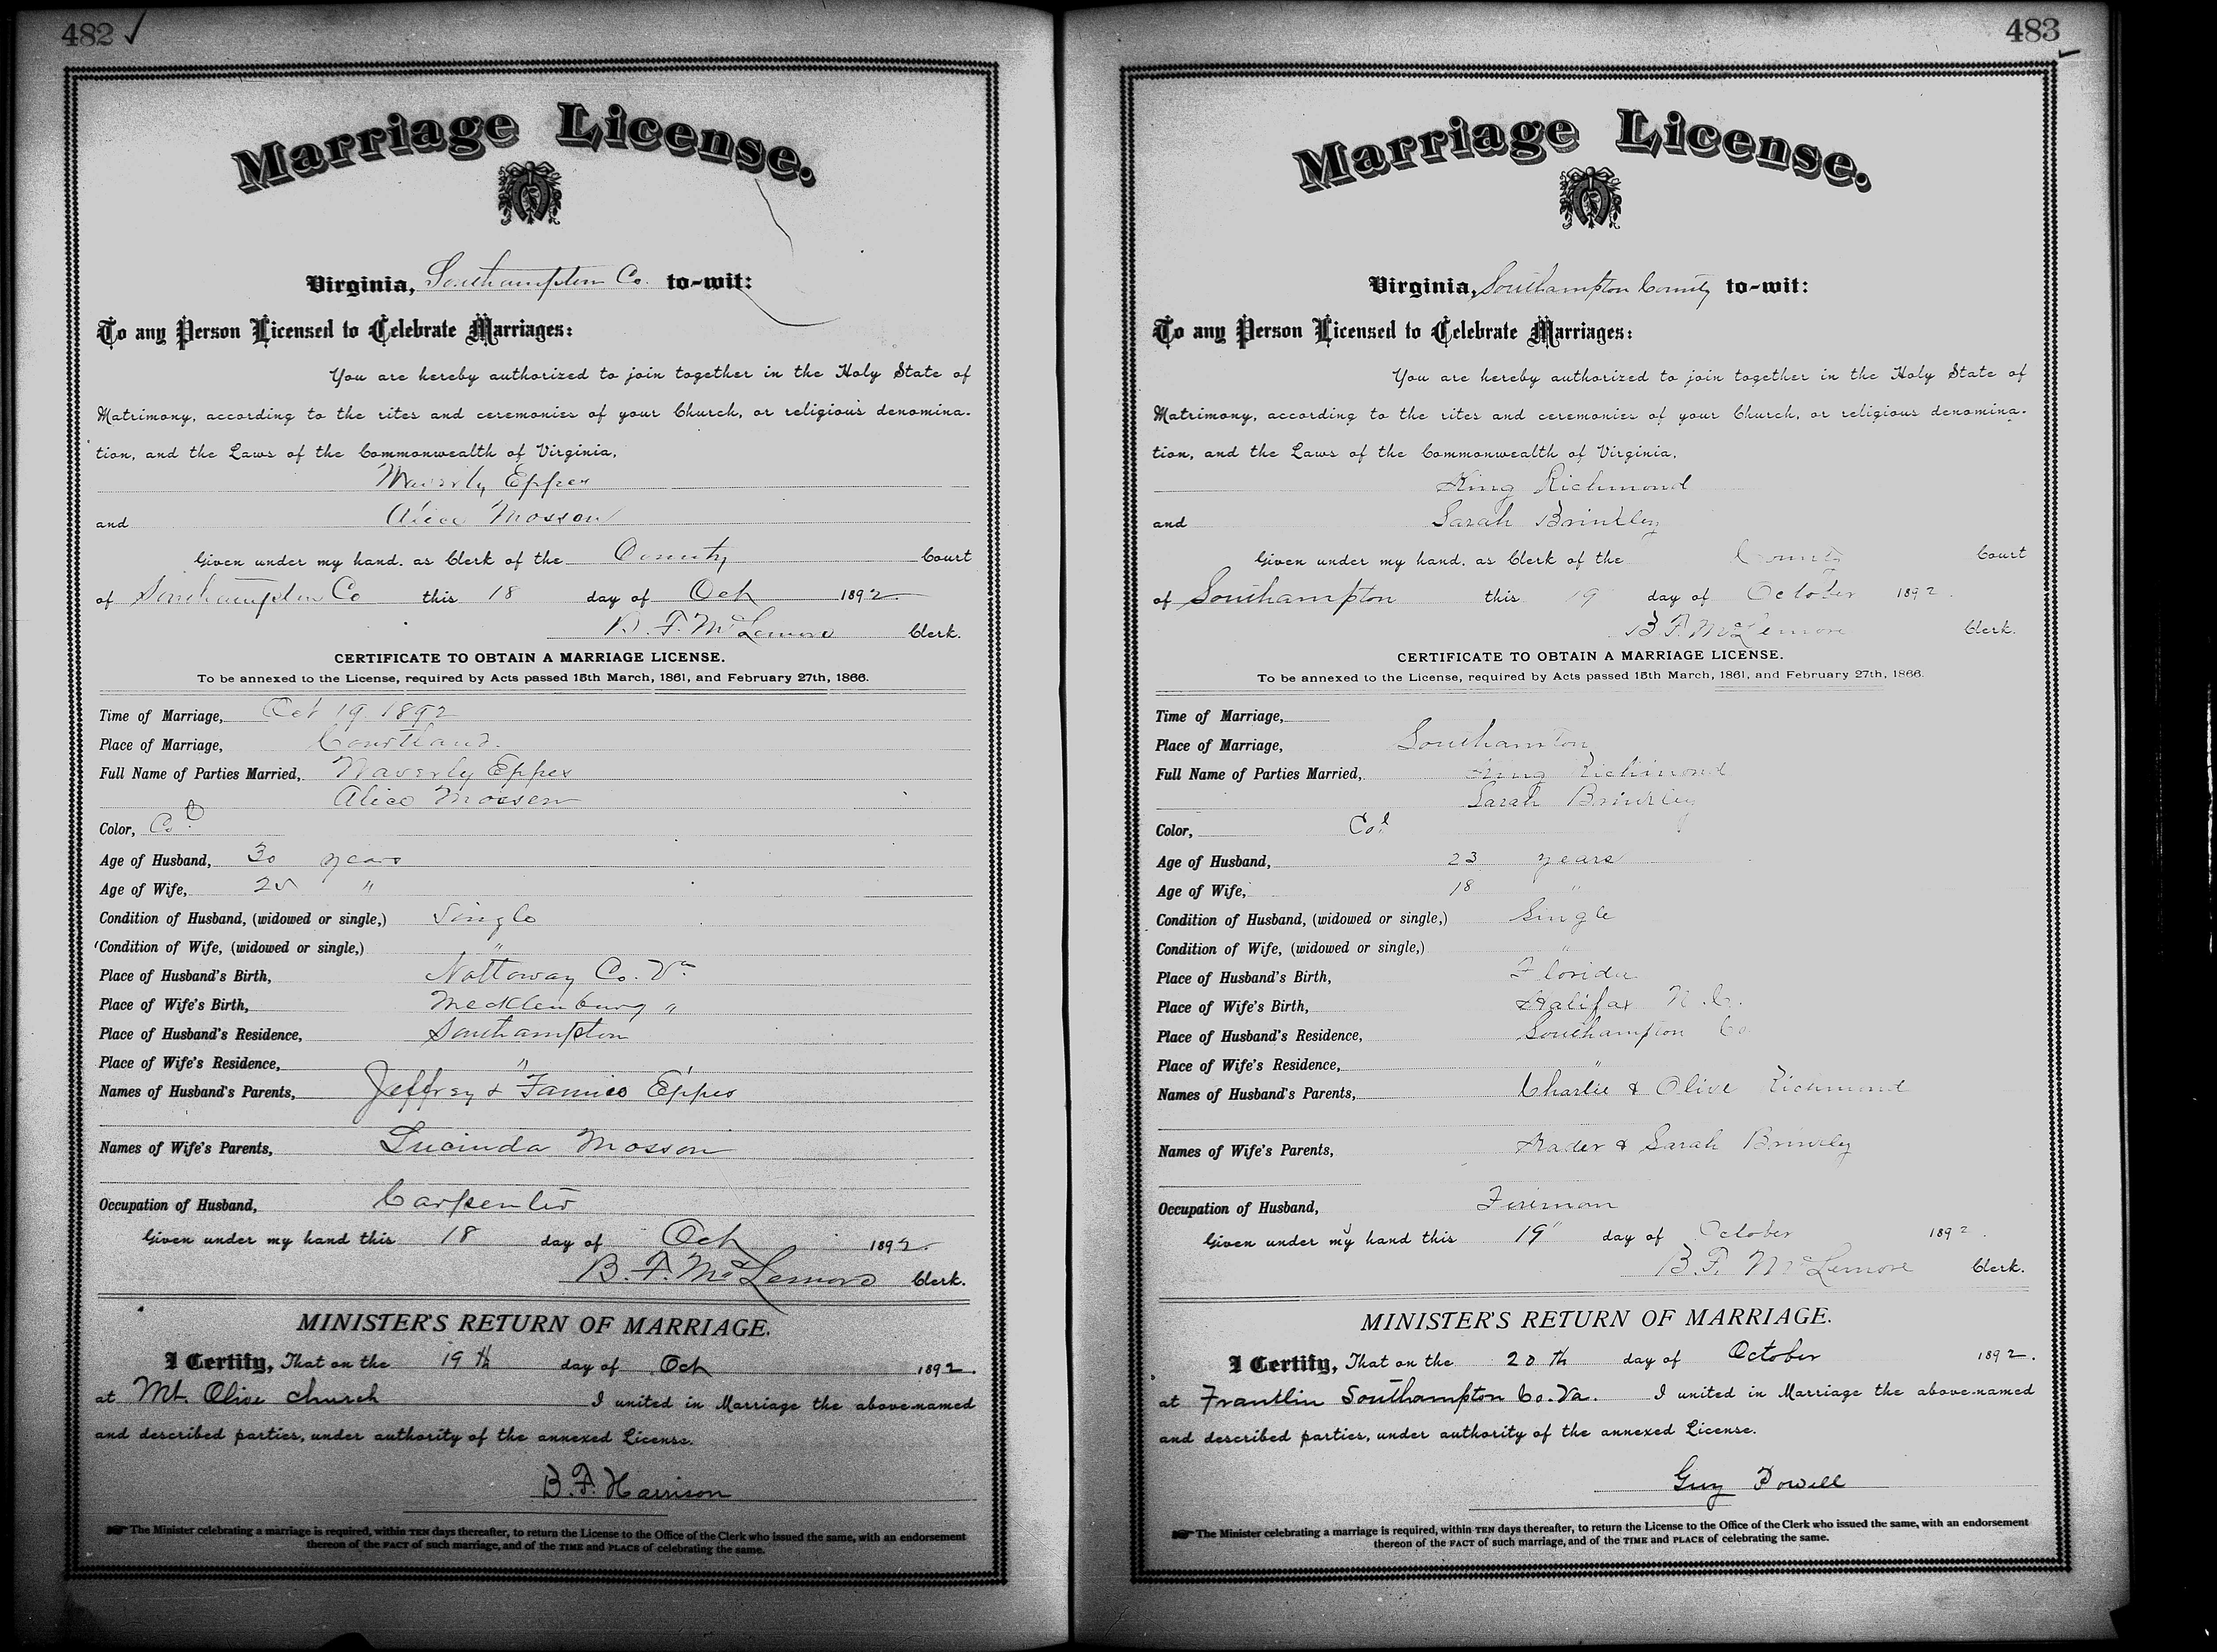 482 ✓
Marriage License.
Virginia, Southampton Co. to-wit:
To any Person Licensed to Celebrate Marriages:
You are hereby authorized to join together in the Holy State of
Matrimony, according to the rites and ceremonies of your Church, or religious denomina-
tion, and the Laws of the Commonwealth of Virginia,
Waverly Eppes
and Alice Mosson
Given under my hand, as Clerk of the County Court
of Southampton Co this 18 day of Oct 1892
B. F. McLemore Clerk.
CERTIFICATE TO OBTAIN A MARRIAGE LICENSE.
To be annexed to the License, required by Acts passed 15th March, 1861, and February 27th, 1866.
Time of Marriage, Oct 19. 1892
Place of Marriage, Courtland.
Full Name of Parties Married, Waverly Eppes
Alice Mosson
Color, Col
Age of Husband, 30 years
Age of Wife, 25 "
Condition of Husband, (widowed or single,) Single
Condition of Wife, (widowed or single,) "
Place of Husband's Birth, Nottoway Co. Va
Place of Wife's Birth, Mecklenburg "
Place of Husband's Residence, Southampton
Place of Wife's Residence, "
Names of Husband's Parents, Jeffrey & Fannie Eppes
Names of Wife's Parents, Lucinda Mosson
Occupation of Husband, Carpenter
Given under my hand this 18 day of Oct 1892.
B. F. McLemore Clerk.
MINISTER'S RETURN OF MARRIAGE.
I Certify, That on the 19th day of Oct 1892.
at Mt. Olive church I united in Marriage the above-named
and described parties, under authority of the annexed License.
B. F. Harrison
☞ The Minister celebrating a marriage is required, within TEN days thereafter, to return the License to the Office of the Clerk who issued the same, with an endorsement
thereon of the FACT of such marriage, and of the TIME and PLACE of celebrating the same.
483
Marriage License.
Virginia, Southampton County to-wit:
To any Person Licensed to Celebrate Marriages:
You are hereby authorized to join together in the Holy State of
Matrimony, according to the rites and ceremonies of your Church, or religious denomina-
tion, and the Laws of the Commonwealth of Virginia,
King Richmond
and Sarah Brinkley
Given under my hand, as Clerk of the County Court
of Southampton this 19 day of October 1892.
B. F. McLemore Clerk.
CERTIFICATE TO OBTAIN A MARRIAGE LICENSE.
To be annexed to the License, required by Acts passed 15th March, 1861, and February 27th, 1866.
Time of Marriage,
Place of Marriage, Southamton
Full Name of Parties Married, King Richmond
Sarah Brinkley
Color, Col
Age of Husband, 23 years
Age of Wife, 18 "
Condition of Husband, (widowed or single,) Single
Condition of Wife, (widowed or single,) "
Place of Husband's Birth, Florida
Place of Wife's Birth, Halifax N. C.
Place of Husband's Residence, Southampton Co.
Place of Wife's Residence, "
Names of Husband's Parents, Charlie & Olive Richmond
Names of Wife's Parents, & Sarah Brinkley
Occupation of Husband, Fireman
Given under my hand this 19" day of October 1892.
B. F. McLemore Clerk.
MINISTER'S RETURN OF MARRIAGE.
I Certify, That on the 20th day of October 1892.
at Franklin Southampton Co. Va. I united in Marriage the above-named
and described parties, under authority of the annexed License.
Guy Powell
☞ The Minister celebrating a marriage is required, within TEN days thereafter, to return the License to the Office of the Clerk who issued the same, with an endorsement
thereon of the FACT of such marriage, and of the TIME and PLACE of celebrating the same.